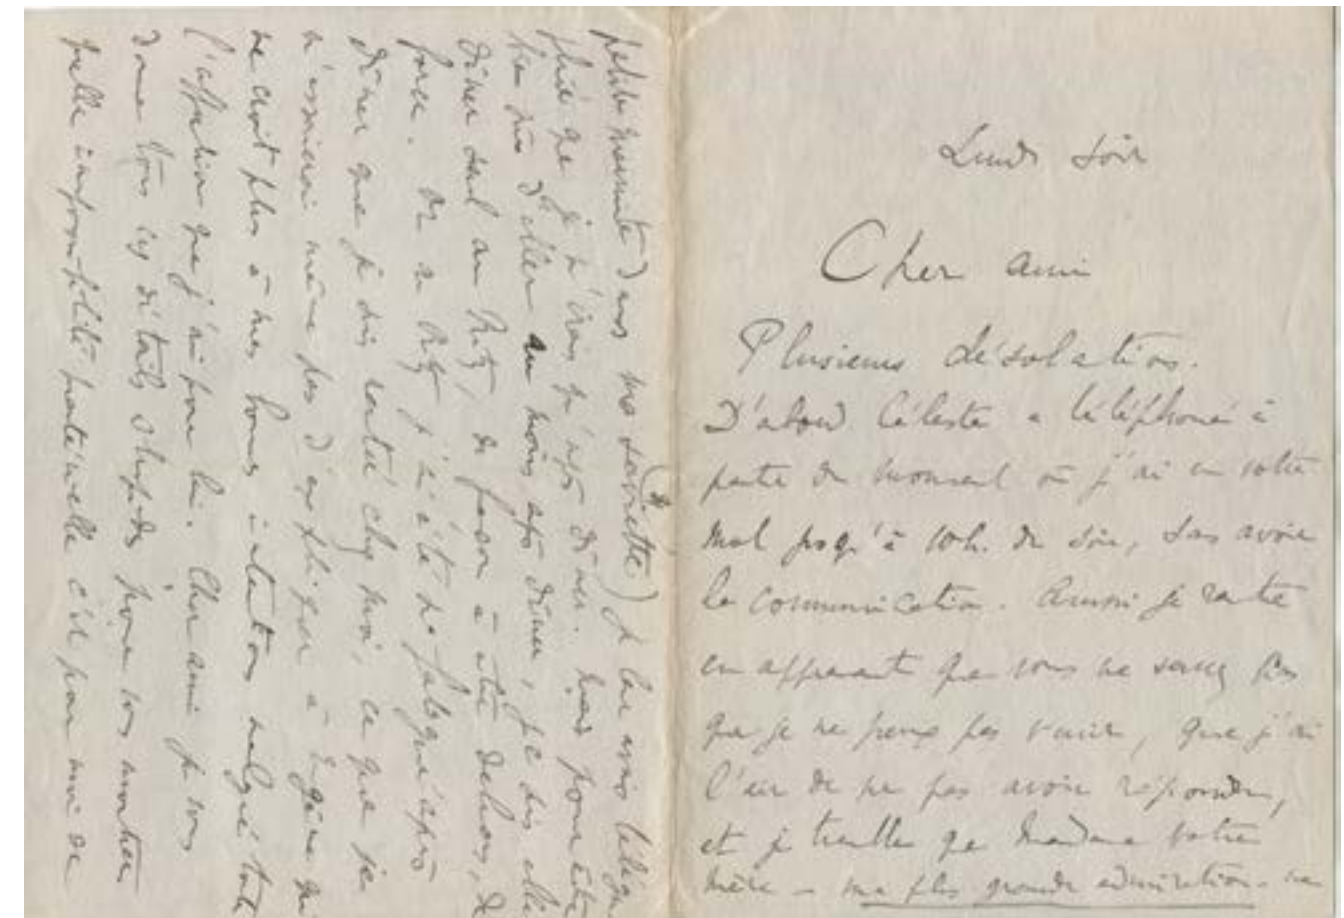 Lundi soir
Cher ami
Plusieurs désolations.
D'abord Céleste a téléphoné à
partir du moment où j'ai eu votre
mot jusqu'à 10h. du soir, sans avoir
la communication. Aussi je reste
en apprenant que vous ne savez pas
que je ne peux pas venir, que j'ai
l'air de ne pas avoir répondu,
et je tremble que Madame votre
mère – ma plus grande admiration – ne
dans ma serviette) je lui avais télégra
phié que je n'irais qu'après dîner. Mais pour être
bien sûr d'aller au moins après dîner, j'ai dû aller
dîner seul au Ritz, de façon à être dehors, de
force. Or au Ritz j'ai été si fatigué après
dîner que je suis rentré chez moi, ce que je
n'essaierai même pas d'expliquer à Eugène qui
ne croit plus à mes bonnes intentions malgré toute
l'affection que j'ai pour lui. Cher ami je vous
donne tous ces détails stupides pour vous montrer
quelle impossibilité matérielle c'est pour moi de